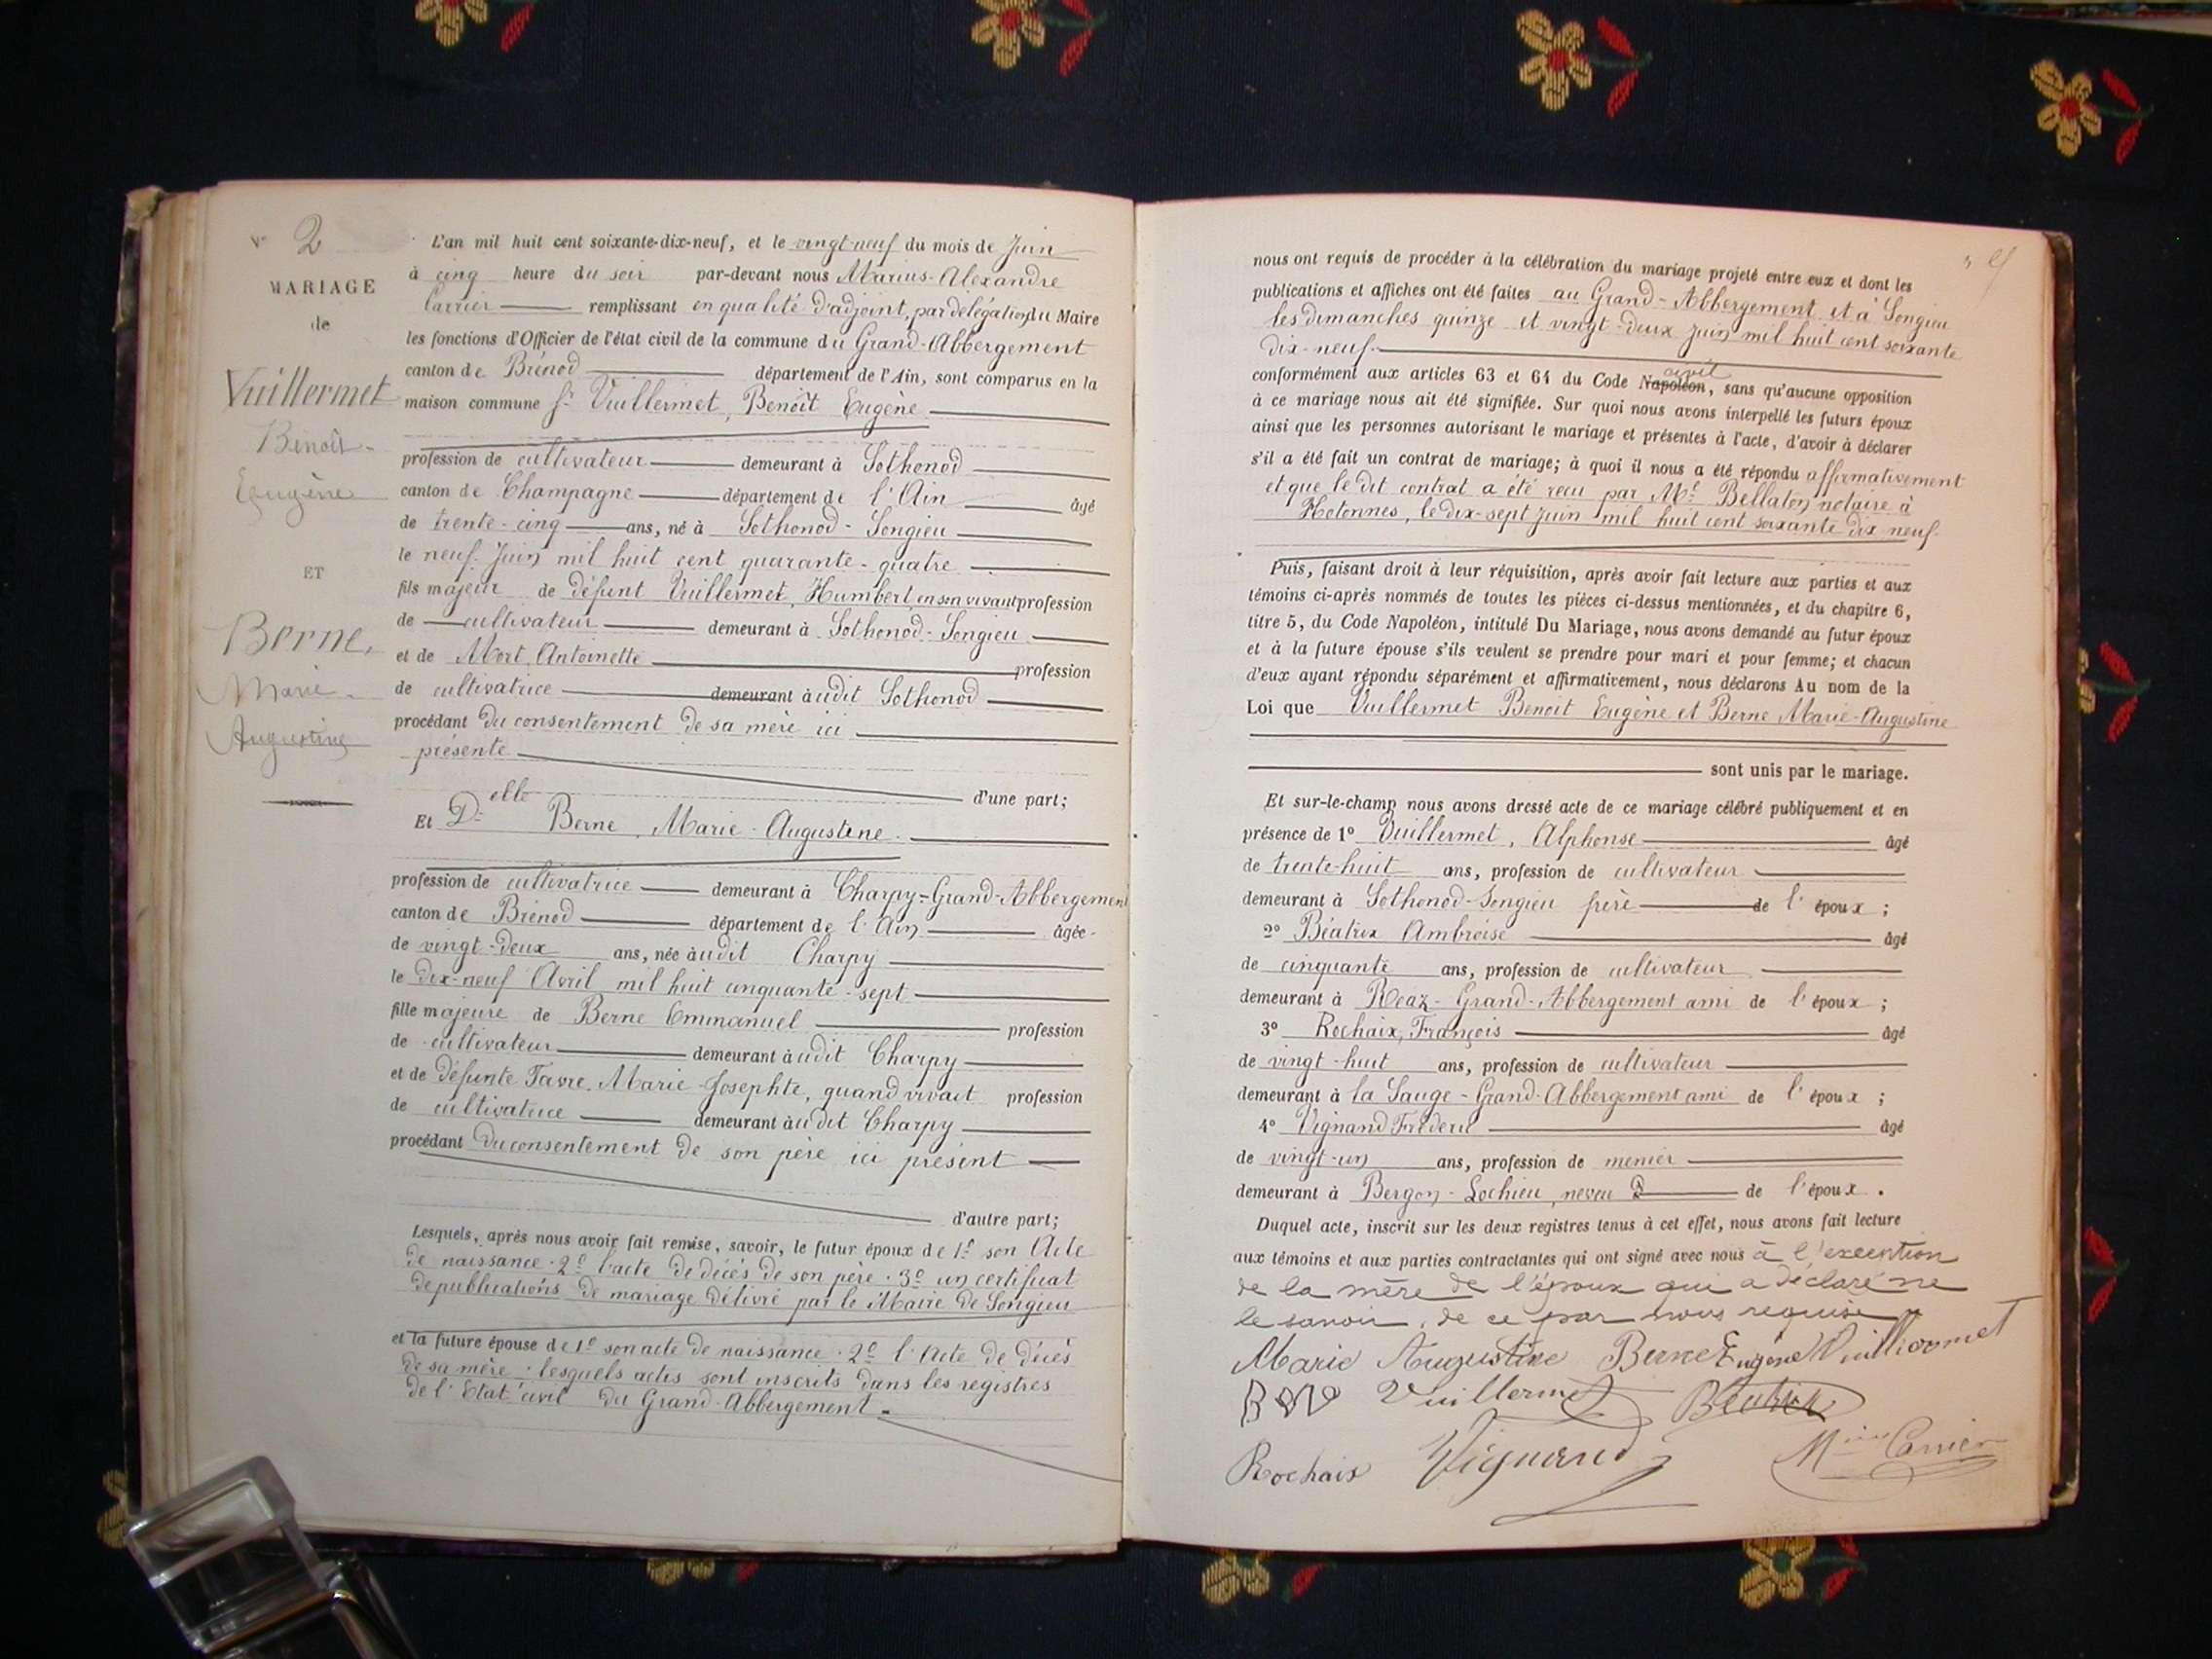 N° 2
MARIAGE
de
Vuillermet
Benoît-
Eugène
ET
Berne,
Marie-
Augustine
L'an mil huit cent soixante-dix-neuf, et le vingt-neuf du mois de Juin
à cinq heure du soir par-devant nous Marius-Alexandre
Carrier remplissant en qualité d'adjoint, par délégation du Maire
les fonctions d'Officier de l'état civil de la commune du Grand-Abbergement
canton de Brénod département de l'Ain, sont comparus en la
maison commune Sr Vuillermet, Benoît Eugène
profession de cultivateur demeurant à Sothonod
canton de Champagne département de l'Ain âgé
de trente-cinq ans, né à Sothonod-Songieu
le neuf Juin mil huit cent quarante-quatre
fils majeur de défunt Vuillermet, Humbert, en son vivant profession
de cultivateur demeurant à Sothonod-Songieu
et de Mort, Antoinette profession
de cultivatrice demeurant àudit Sothonod
procédant du consentement de sa mère ici
présente
d'une part;
Et Delle Berne, Marie-Augustine
profession de cultivatrice demeurant à Charpy=Grand-Abbergement
canton de Brénod département de l'Ain âgée
de vingt-deux ans, née àudit Charpy
le dix-neuf Avril mil huit cinquante-sept
fille majeure de Berne Emmanuel profession
de cultivateur demeurant àudit Charpy
et de défunte Favre, Marie-Josephte, quand vivait profession
de cultivatrice demeurant àudit Charpy
procédant du consentement de son père ici présent
d'autre part;
Lesquels, après nous avoir fait remise, savoir, le futur époux de 1° son Acte
de naissance. 2° l'acte de décès de son père. 3° un certificat
de publications de mariage délivré par le Maire de Songieu
et la future épouse de 1° son acte de naissance. 2° l'Acte de décès
de sa mère. lesquels actes sont inscrits dans les registres
de l'Etat civil du Grand-Abbergement.
nous ont requis de procéder à la célébration du mariage projeté entre eux et dont les
publications et affiches ont été faites au Grand-Abbergement et à Songieu
les dimanches quinze et vingt-deux Juin mil huit cent soixante
dix-neuf
conformément aux articles 63 et 64 du Code Napoléon civil, sans qu'aucune opposition
à ce mariage nous ait été signifiée. Sur quoi nous avons interpellé les futurs époux
ainsi que les personnes autorisant le mariage et présentes à l'acte, d'avoir à déclarer
s'il a été fait un contrat de mariage; à quoi il nous a été répondu affirmativement
et que le dit contrat a été reçu par Me Bellaton notaire à
Hotonnes, le dix-sept Juin mil huit cent soixante dix neuf.
Puis, faisant droit à leur réquisition, après avoir fait lecture aux parties et aux
témoins ci-après nommés de toutes les pièces ci-dessus mentionnées, et du chapitre 6,
titre 5, du Code Napoléon, intitulé Du Mariage, nous avons demandé au futur époux
et à la future épouse s'ils veulent se prendre pour mari et pour femme; et chacun
d'eux ayant répondu séparément et affirmativement, nous déclarons Au nom de la
Loi que Vuillermet Benoit Eugène et Berne Marie-Augustine
sont unis par le mariage.
Et sur-le-champ nous avons dressé acte de ce mariage célébré publiquement et en
présence de 1° Vuillermet, Alphonse âgé
de trente-huit ans, profession de cultivateur
demeurant à Sothonod-Songieu frère de l'époux;
2° Béatrix Ambroise âgé
de cinquante ans, profession de cultivateur
demeurant à Réaz-Grand-Abbergement ami de l'époux;
3° Rochaix, François âgé
de vingt-huit ans, profession de cultivateur
demeurant à la Sauge-Grand-Abbergement ami de l'époux;
4° Vignand Fréderic âgé
de vingt-un ans, profession de menier
demeurant à Bergon-Lochieu, neveu de l'époux.
Duquel acte, inscrit sur les deux registres tenus à cet effet, nous avons fait lecture
aux témoins et aux parties contractantes qui ont signé avec nous à l'exception
de la mère de l'époux qui a déclaré ne
le savoir, de ce par nous requise
Marie Augustine Berne Eugène Vuillermet
Vuillermet Béatrix
Rochaix Vignand Carrier